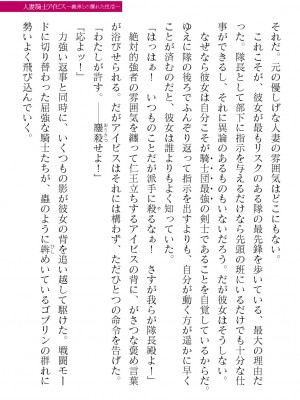 人妻騎士アイビス
それだ。元の優しげな人妻の雰囲気はどこにもない。
これこそが、彼女が最もリスクのある隊の最先鋒を歩いている、最大の理由だ
った。隊長として部下に指示を与えるだけなら先頭の班にいるだけでも十分な仕
事ができるし、それに異論のあるものもいないだろう。だが彼女はそうしない。
なぜなら彼女は自分こそが騎士団最強の剣士であることを自覚しているからだ。
ゆえに隊の後ろでふんぞり返って指示を出すよりも、自分が動く方が遥かに早く
ことが済むのだと、彼女は誰よりもよく知っていた。
「はっはぁ！　いつものことだが派手に殺るなぁ！　さすが我らが隊長殿よ！」
絶対的強者の雰囲気を纏って仁王立ちするアイビスの背に、がさつな褒め言葉
が浴びせられる。だがアイビスはそれには構わず、ただひとつの命令を告げた。
「わたしが許す。――鏖殺せよ！」
「応よッ！」
力強い返事と同時に、いくつもの影が彼女の背を追い越して駆けた。戦闘モー
ドに切り替わった屈強な騎士たちが、蟲のように犇めいているゴブリンの群れに
勢いよく飛び込んでいく。